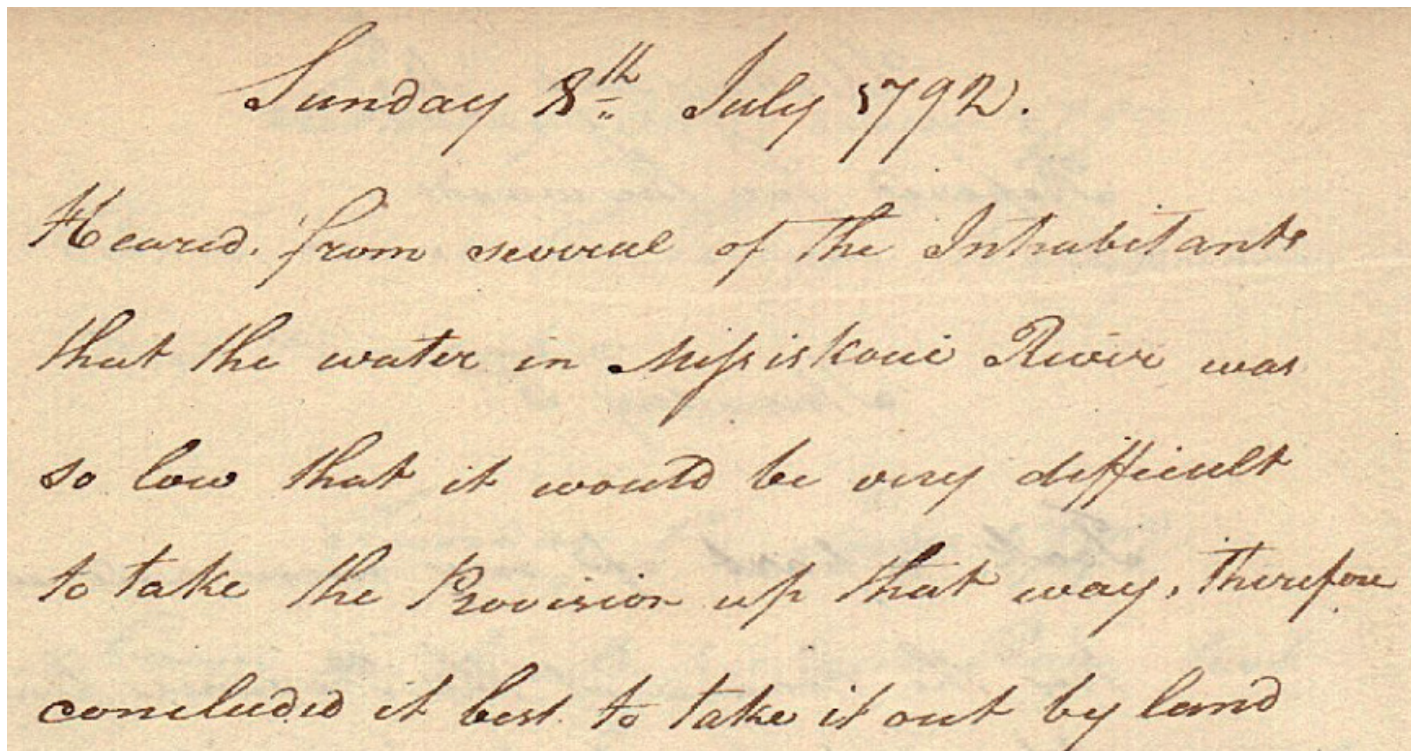 Sunday 8th July 1792.
Heard. from several of the Inhabitants
that the water in Missiskoui River was
so low that it would be very difficult
to take the Provision up that way, therefore
concluded it best to take it out by land